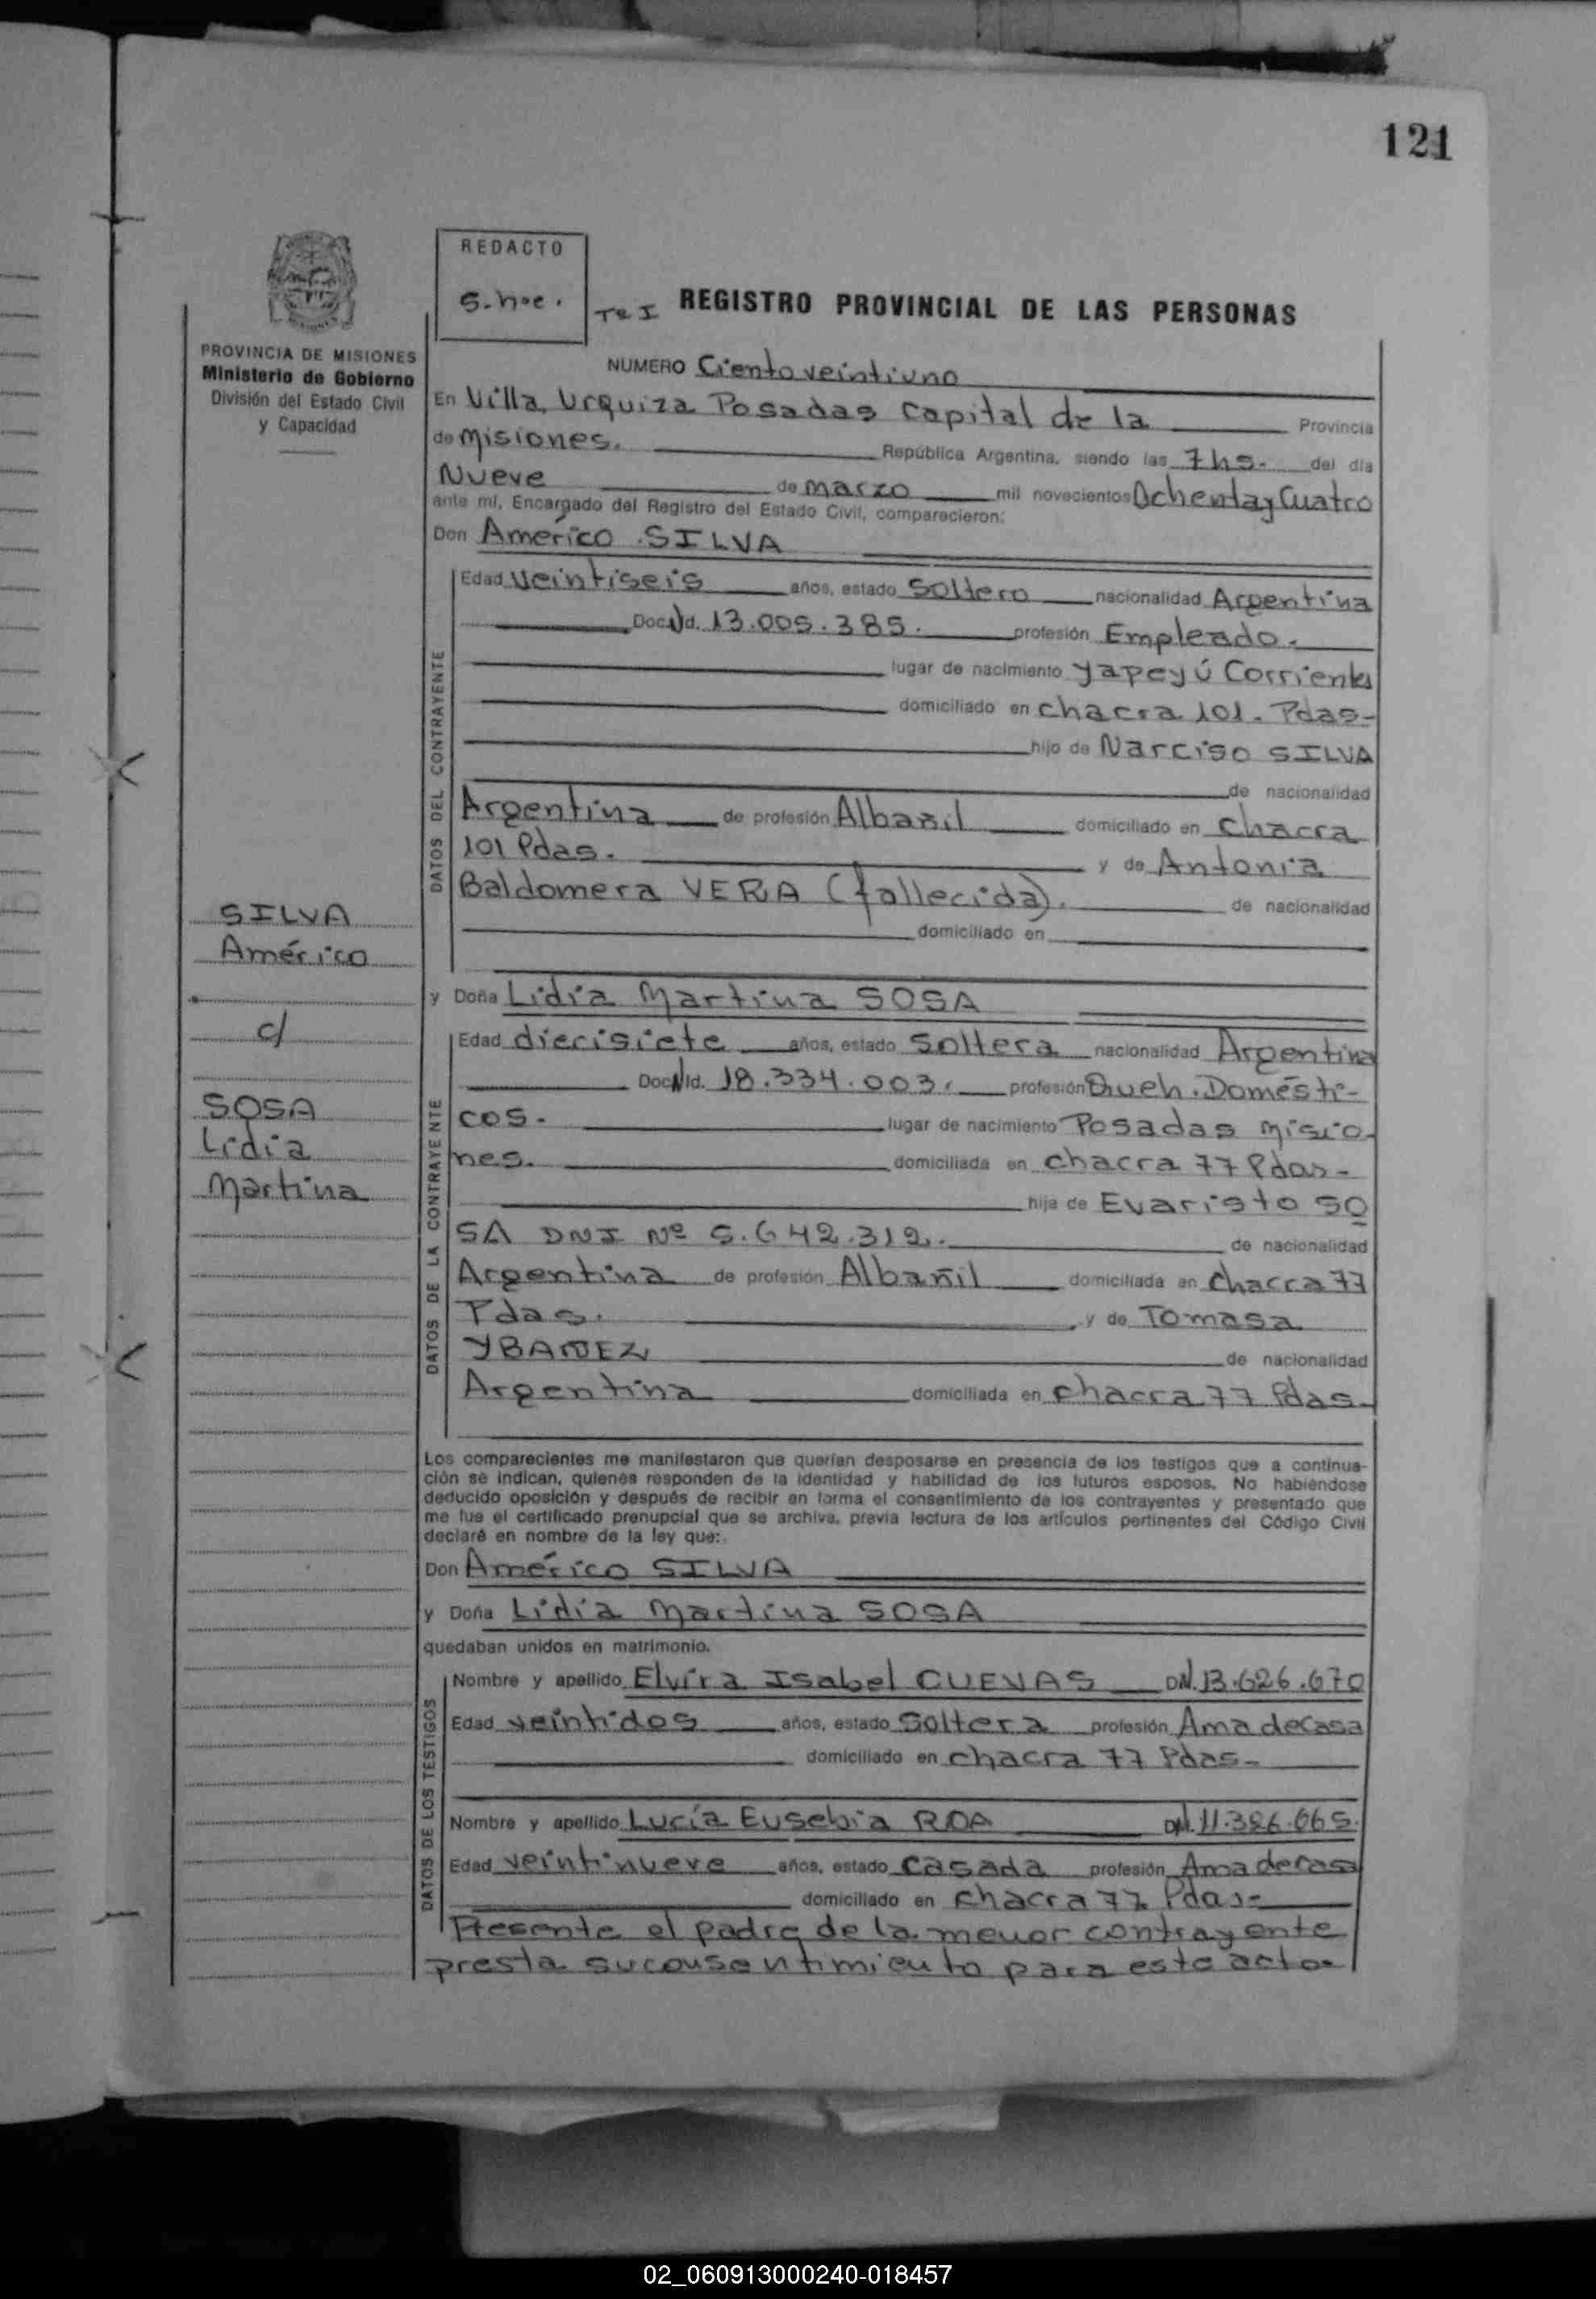 121
REDACTO
S.h.e.
Tº I REGISTRO PROVINCIAL DE LAS PERSONAS
PROVINCIA DE MISIONES
Ministerio de Gobierno
División del Estado Civil
y Capacidad
NUMERO Ciento veintiuno
En Villa Urquiza Posadas Capital de la Provincia
de Misiones. República Argentina, siendo las 7 hs. del día
Nueve de marzo mil novecientos Ochenta y Cuatro
ante mí, Encargado del Registro del Estado Civil, comparecieron:
Don Américo SILVA
DATOS DEL CONTRAYENTE
Edad veintiseis años, estado Soltero nacionalidad Argentina
Doc. Nd. 13.005.385. profesión Empleado.
lugar de nacimiento Yapeyú Corrientes
domiciliado en chacra 101. Pdas-
hijo de Narciso SILVA
de nacionalidad
Argentina de profesión Albañil domiciliado en Chacra
101 Pdas. y de Antonia
Baldomera VERA (fallecida). de nacionalidad
domiciliado en
SILVA
Américo
c/
SOSA
Lidia
Martina
y Doña Lidia Martina SOSA
DATOS DE LA CONTRAYENTE
Edad diecisiete años, estado Soltera nacionalidad Argentina
Doc. Nd. 18.334.003. profesión Queh. Domésti-
cos. lugar de nacimiento Posadas Misio-
nes. domiciliada en chacra 77 Pdas-
hija de Evaristo SO
SA DNI Nº 5.642.312. de nacionalidad
Argentina de profesión Albañil domiciliada en chacra 77
Pdas. y de Tomasa
YBAÑEZ de nacionalidad
Argentina domiciliada en chacra 77 Pdas.
Los comparecientes me manifestaron que querían desposarse en presencia de los testigos que a continua-
ción se indican, quienes responden de la identidad y habilidad de los futuros esposos. No habiéndose
deducido oposición y después de recibir en forma el consentimiento de los contrayentes y presentado que
me fue el certificado prenupcial que se archiva, previa lectura de los artículos pertinentes del Código Civil
declaré en nombre de la ley que:
Don Américo SILVA
y Doña Lidia Martina SOSA
quedaban unidos en matrimonio.
DATOS DE LOS TESTIGOS
Nombre y apellido Elvira Isabel CUEVAS DN. 13.626.670
Edad veintidos años, estado Soltera profesión Ama de Casa
domiciliado en chacra 77 Pdas-
Nombre y apellido Lucía Eusebia ROA DN. 11.386.665.
Edad veintinueve años, estado Casada profesión Ama de casa
domiciliado en chacra 77 Pdas-
Presente el padre de la menor contrayente
presta su consentimiento para este acto-
02_060913000240-018457